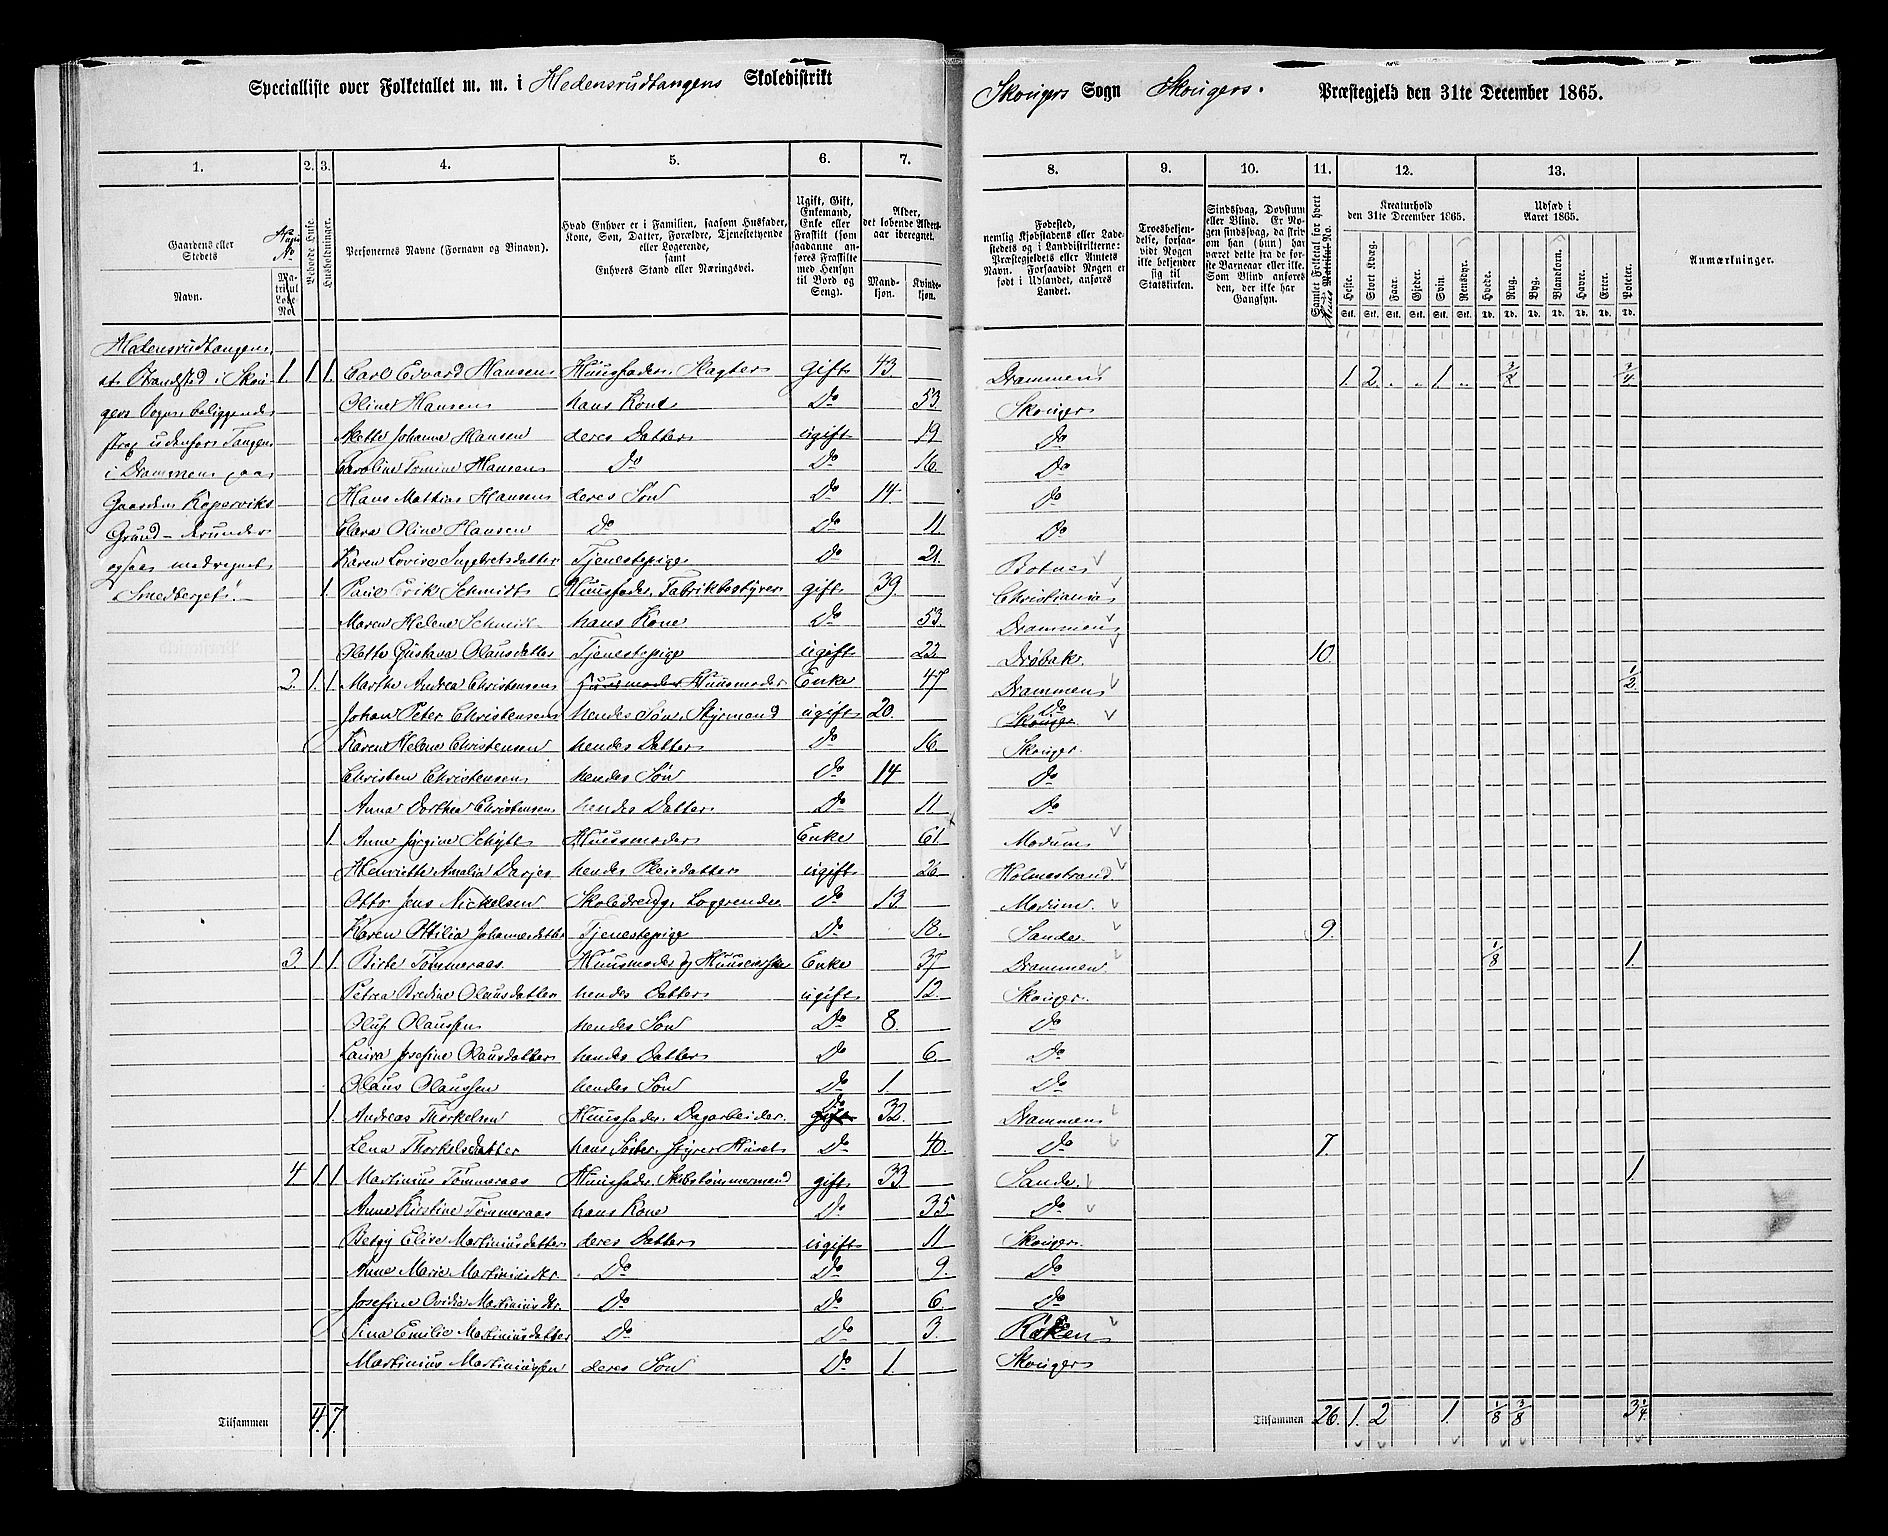 Specialliste over Folketallet m. m. i Hedensrudtangens Skoledistrikt
Skouger Sogn Skouger Præstegjeld den 31te December 1865.
1. 2. 3. 4. 5. 6. 7. 8. 9. 10. 11. 12. 13.
Gaardens eller Stedets Navn.
Huus No
Matrikul Løbe-No.
Beboede Huse.
Husholdninger.
Personernes Navne (Fornavn og Binavn).
Hvad Enhver er i Familien, saasom Husfader, Kone, Søn, Datter, Forældre, Tjenestetyende eller Logerende, samt Enhvers Stand eller Næringsvei.
Ugift, Gift, Enkemand, Enke eller Fraskilt (som saadanne anføres Fraskilte med Hensyn til Bord og Seng).
Alder, det løbende Aldersaar iberegnet.
Mandkjøn. Kvindekjøn.
Fødested, nemlig Kjøbstadens eller Ladestedets og i Landdistrikterne: Præstegjeldets eller Amtets Navn. Forsaavidt Nogen er født i Udlandet, anføres Landet.
Troesbekjendelse, forsaavidt Nogen ikke bekjender sig til Statskirken.
Sindssvag, Døvstum eller Blind. Er Nogen sindssvag, da skriv om han (hun) har været dette fra de første Barneaar eller ikke. Som Blind anføres den, der ikke har Gangsyn.
Samlet Folketal for hvert Huus No.
Kreaturhold den 31te December 1865.
Heste. Stort Kvæg. Faar. Gjeder. Svin. Rensdyr.
Udsæd i Aaret 1865.
Hvede. Rug. Byg. Blandkorn. Havre. Erter. Poteter.
Anmærkninger.
Hedensrudtangen,
et Strandsted i Skou-
gers Sogn beliggende
strax udenfor Tangen
i Drammen paa
Gaarden Kopervik
Grund - herunder
ogsaa medregnet
Smedberget. -
1. 1 1. Carl Edvard Hansen Huusfader, Slagter gift 43 Drammen 1. 2. 1 3/8 3/4
Oline Hansen hans Kone Do 53. Skouger
Mette Johanne Hansen deres Datter ugift 19 Do
Caroline Tomine Hansen Do Do 16 Do
Hans Mathias Hansen deres Søn Do 14 Do
Clara Oline Hansen Do Do 11. Do
Karen Lovise Ingebretsdatter Tjenestepige Do 21. Botne
1. Paul Erik Schmidt Huusfader, Fabrikbestyrer gift 39. Christiania
Maren Helene Schmidt hans Kone Do 53. Drammen
Olette Gustava Olausdatter Tjenestepige ugift 22 Drøbak 10.
2. 1. 1 Marthe Andrea Christensen Huusmoder Huusmoder Enke 47 Drammen 1/2
Johan Peter Christensen hendes Søn, Styrmand ugift 20. Skouger Do
Karen Helene Christensen hendes Datter Do 16. Skouger
Christen Christensen hendes Søn Do 14 Do
Anna Dorthea Christensen hendes Datter Do 11 Do
1. Anne Jørgine Schytt Huusmoder Enke 61. Modum
Henriette Amalia Dorjes hendes Pleiedatter ugift 26 Holmestrand
Otto Jens Nickelsen Skoledreng, Logerende Do 13. Modum
Karen Ottilia Johannesdatter Tjenestepige Do 18. Sande 9.
3. 1 1. Birte Tømmeraas Huusmoder og Huuseierske Enke 37 Drammen 1/8 1.
Petrea Bredine Olausdatter hendes Datter ugift 12. Skouger
Oluf Olaussen hendes Søn Do 8. Do
Laura Josefine Olausdatter hendes Datter Do 6. Do
Olaus Olaussen hendes Søn Do 1. Do
1. Andreas Thorkelsen Huusfader, Dagarbeider gift Do 32. Drammen
Lena Thorkelsdatter hans Søster, styrer Huset Do 40. Do 7.
4 1 1 Martinius Tømmeraas Huusfader, Skibstømmermand gift 33 Sande 1
Anne Kirstine Tømmeraas hans Kone Do 35 Do
Betsy Elise Martiniusdatter deres Datter ugift 11 Skouger
Anne Marie Martiniusdtr. Do Do 9. Do
Josefine Ovidia Martiniusdtr. Do Do 6. Do
Sina Emilie Martiniusdatter Do Do 3. Røken
Martinius Martiniussen deres Søn Do 1. Skouger
Tilsammen 4. 7.
Tilsammen 26. 1. 2 1. 1/8 3/8 3 1/4